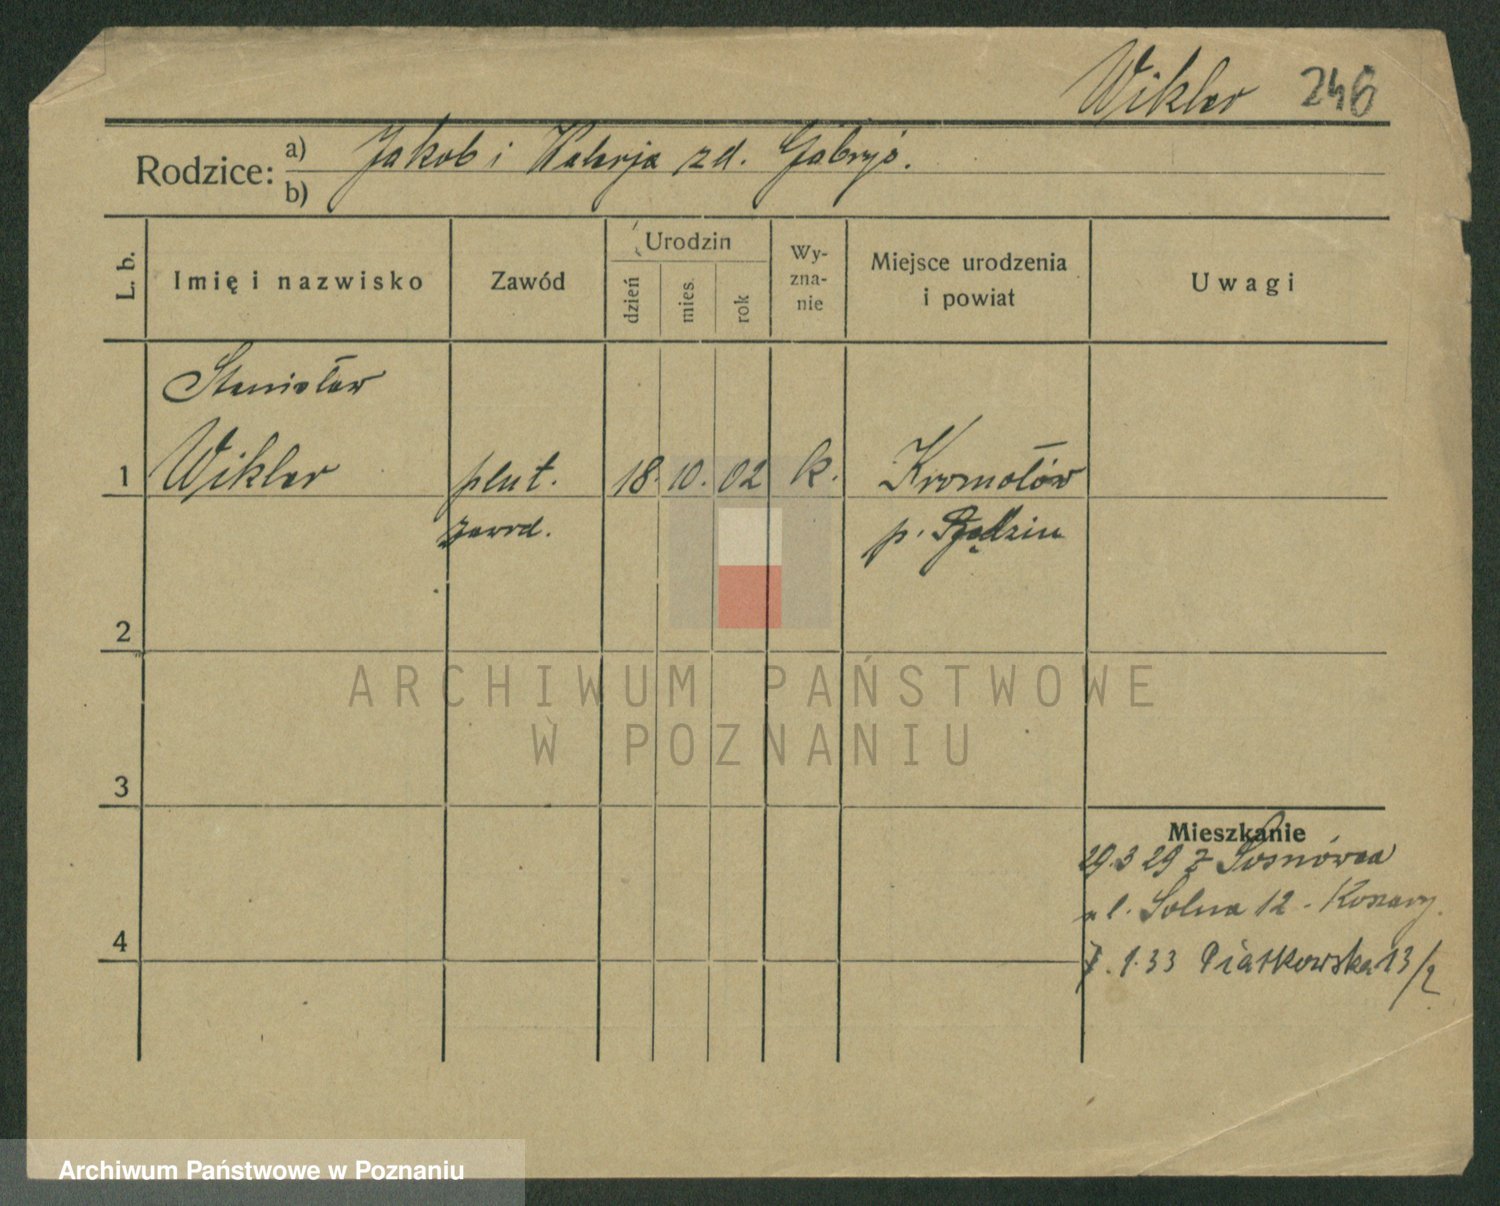 Wikler 246
Rodzice: a) Jakob i Walerja zd. Gabryś.
b)
L. b.
Imię i nazwisko
Zawód
Urodzin
dzień
mies.
rok
Wy-
zna-
nie
Miejsce urodzenia
i powiat
Uwagi
Stanisław
1 Wikler plut. 18. 10. 02 k. Kromołów
zawod. p. Będzin
2
ARCHIWUM PAŃSTWOWE
W POZNANIU
3
Mieszkanie
29.3 29 z Sosnówca
ul. Solna 12 - Koszary.
4
7.1.33 Piatkowska 13/2
Archiwum Państwowe w Poznaniu